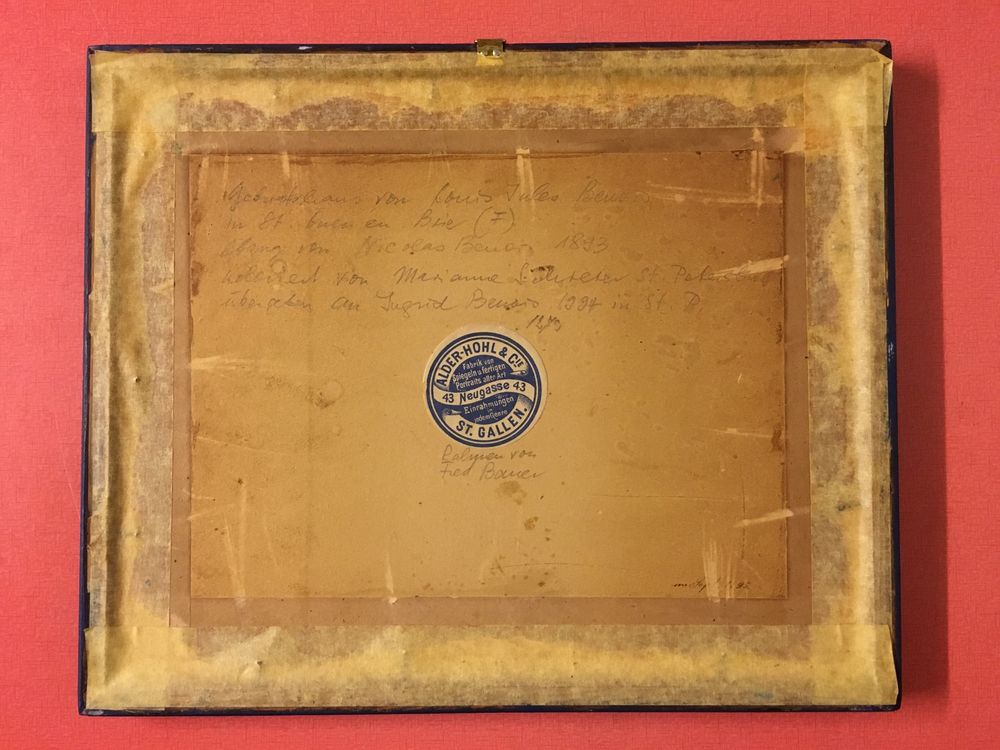 Geburtshaus von Louis Jules Benois
in St. Ouen en Brie (F)
von Nicolas Benois 1893
von Marianne St. Petersburg
übergeben an Ingrid Benois 1994 in St. P.
ALDER-HOHL & CIE
Fabrik von
Spiegeln u. fertigen
Portraits aller Art
43 Neugasse 43
Einrahmungen
in
jedem Genre
ST. GALLEN.
Rahmen von
Fred Bauer